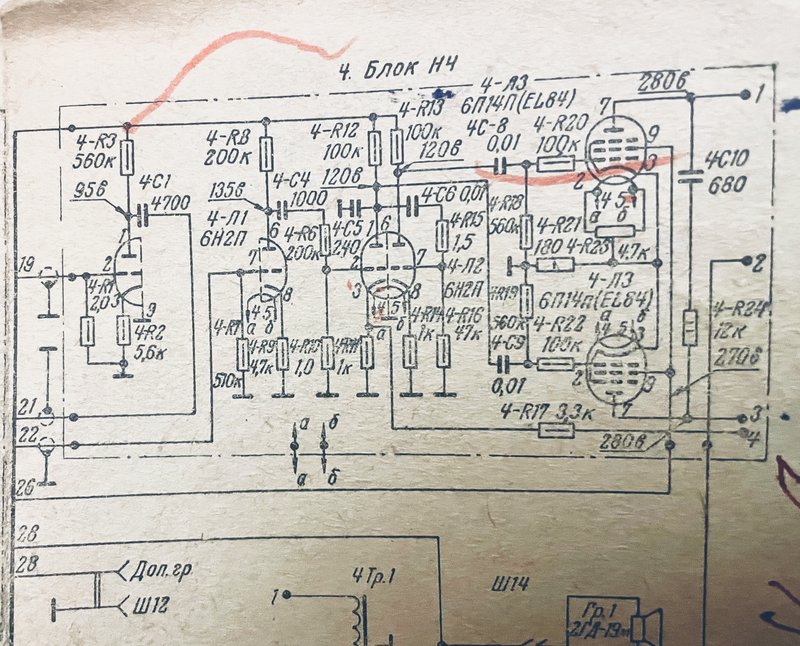 4. Блок НЧ
4-Л3
6П14П(EL84)
280в
7
1
4-R3
560к
4-R8
200к
4-R12
100к
4-R13
100к
4C-8
0,01
4-R20
100к
9
3
2
4С10
680
95в
4С1
4700
135в
4-С4
1000
120в
120в
4-С6 0,01
4-R18
560к
4 5
а
б
4-Л1
6Н2П
6
4-R6
200к
4-С5
240
1
6
4-R15
1,5
4-R21
180
4-R23
4,7к
2
1
19
2
7
2
7
4-Л2
6Н2П
4-Л3
6П14п(EL84)
4-R1
2,0
3
9
8
4 5
а
б
3
4 5
8
б
а
4-R19
560к
4-R24
12к
4-R2
5,6к
4-R7
510к
4-R9
4,7к
4-R10
1,0
4-R11
1к
4-R14
1к
4-R16
47к
4-С9
0,01
4-R22
100к
а
4 5
б
3
2
9
7
270в
21
22
а
б
а
б
4-R17 3,3к
280в
3
4
26
28
28
Доп.гр.
Ш12
4Тр.1
1
Ш14
Гр.1
2ГД-19м